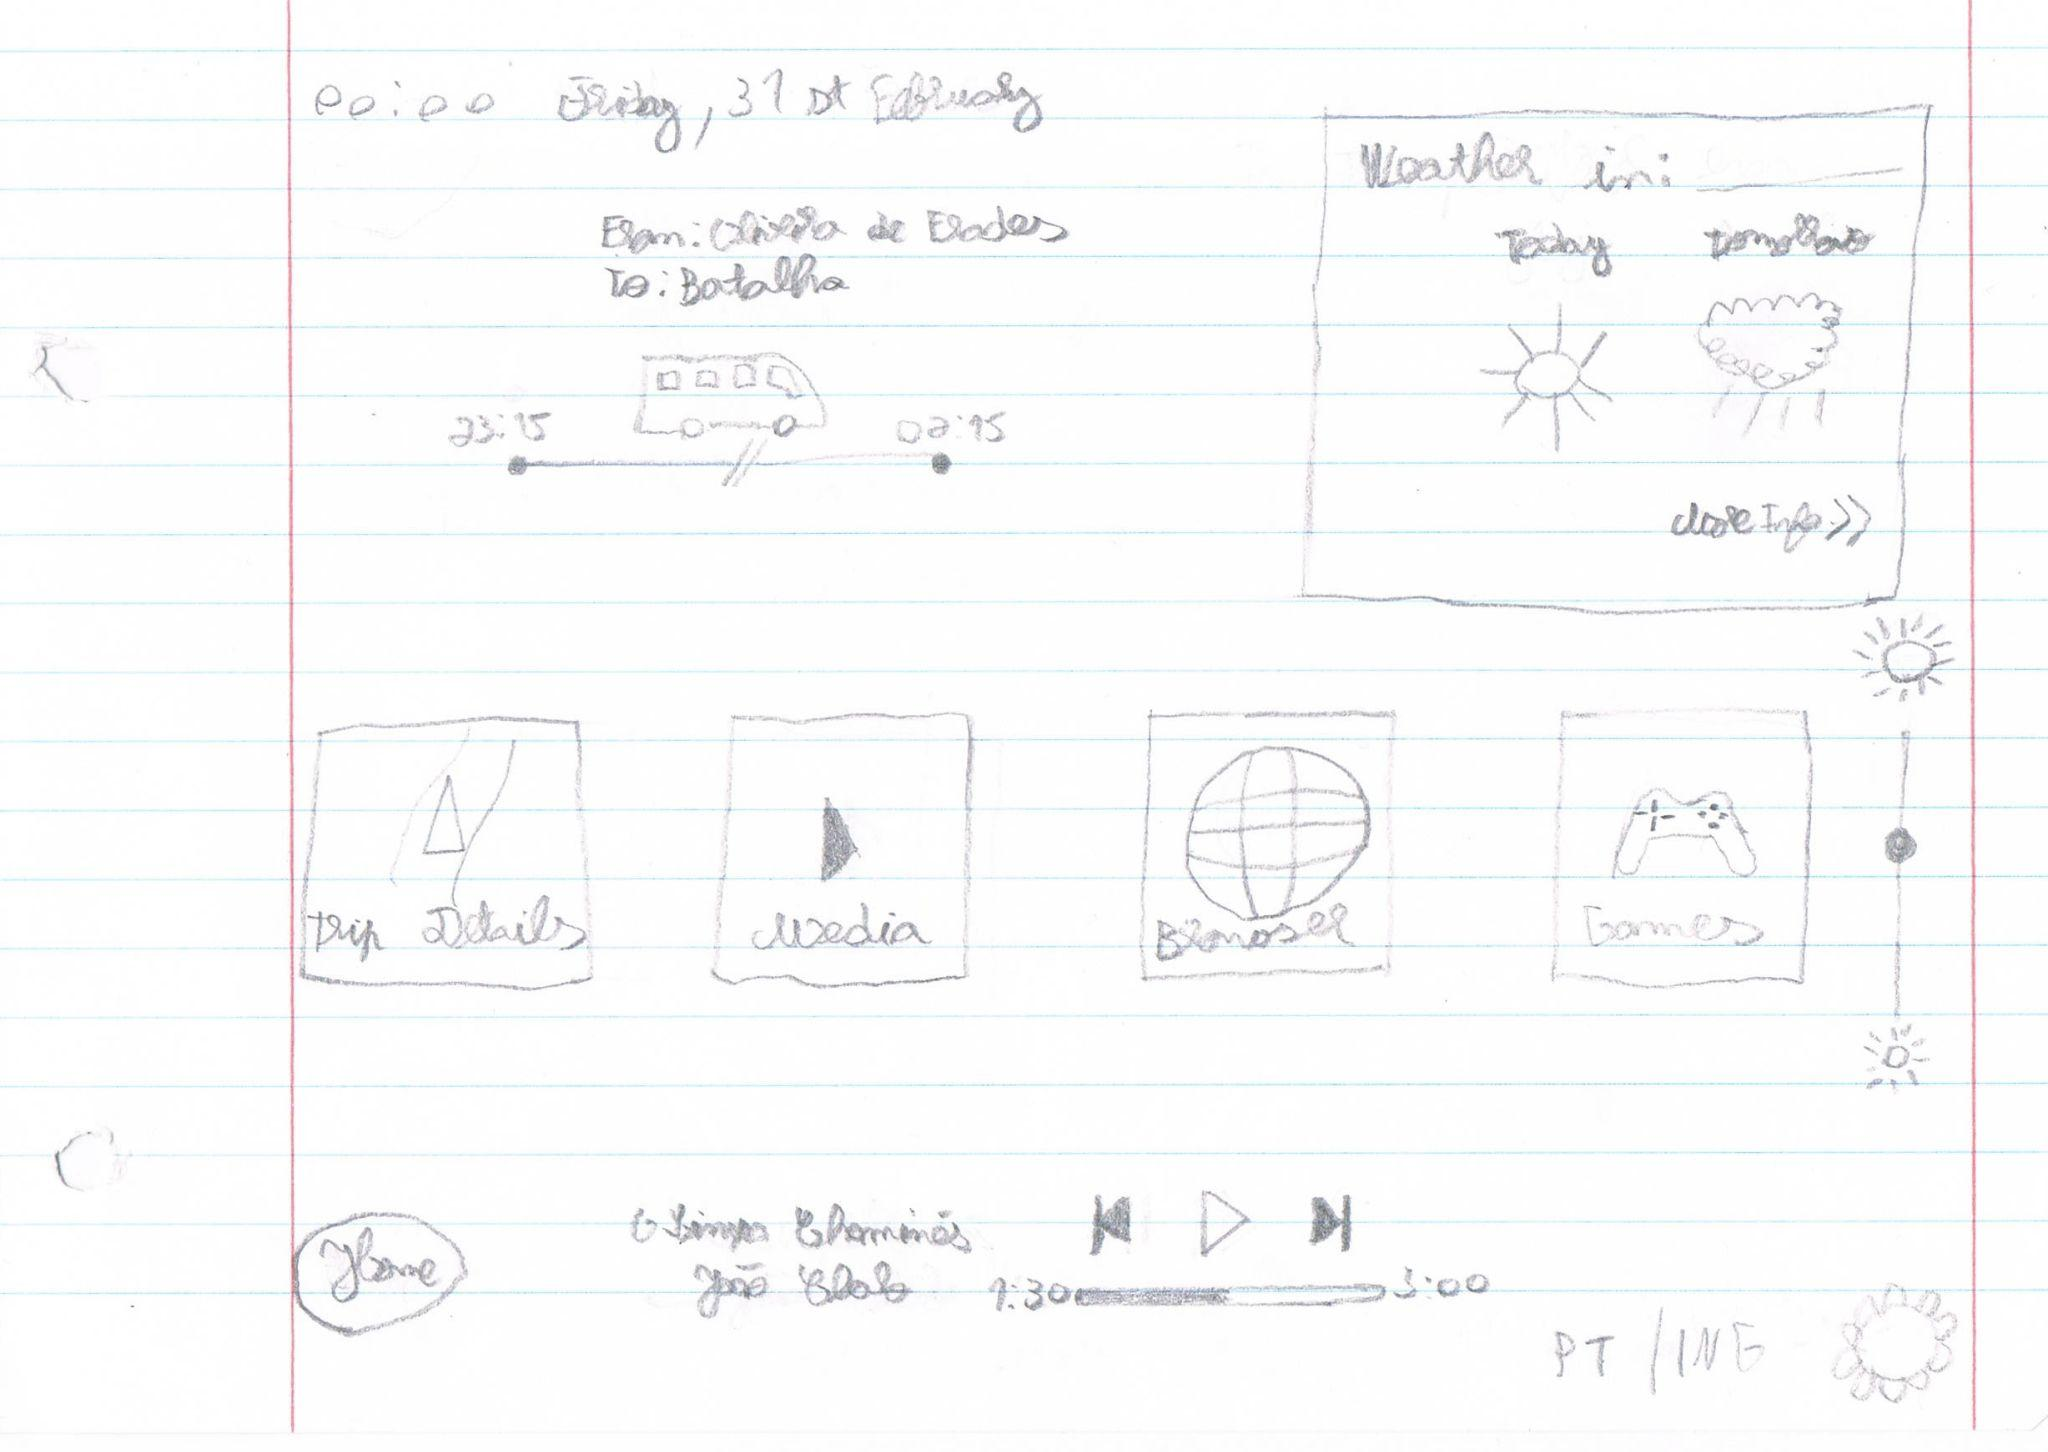 00:00 Friday, 31 st February
From: Oliveira de Frades
To: Batalha
23:15
02:15
Weather in:
Today Tomorrow
More Info >>
Trip Details
Media
Browser
Games
Home
O Limpa Chaminés
João
1:30
3:00
PT / ING